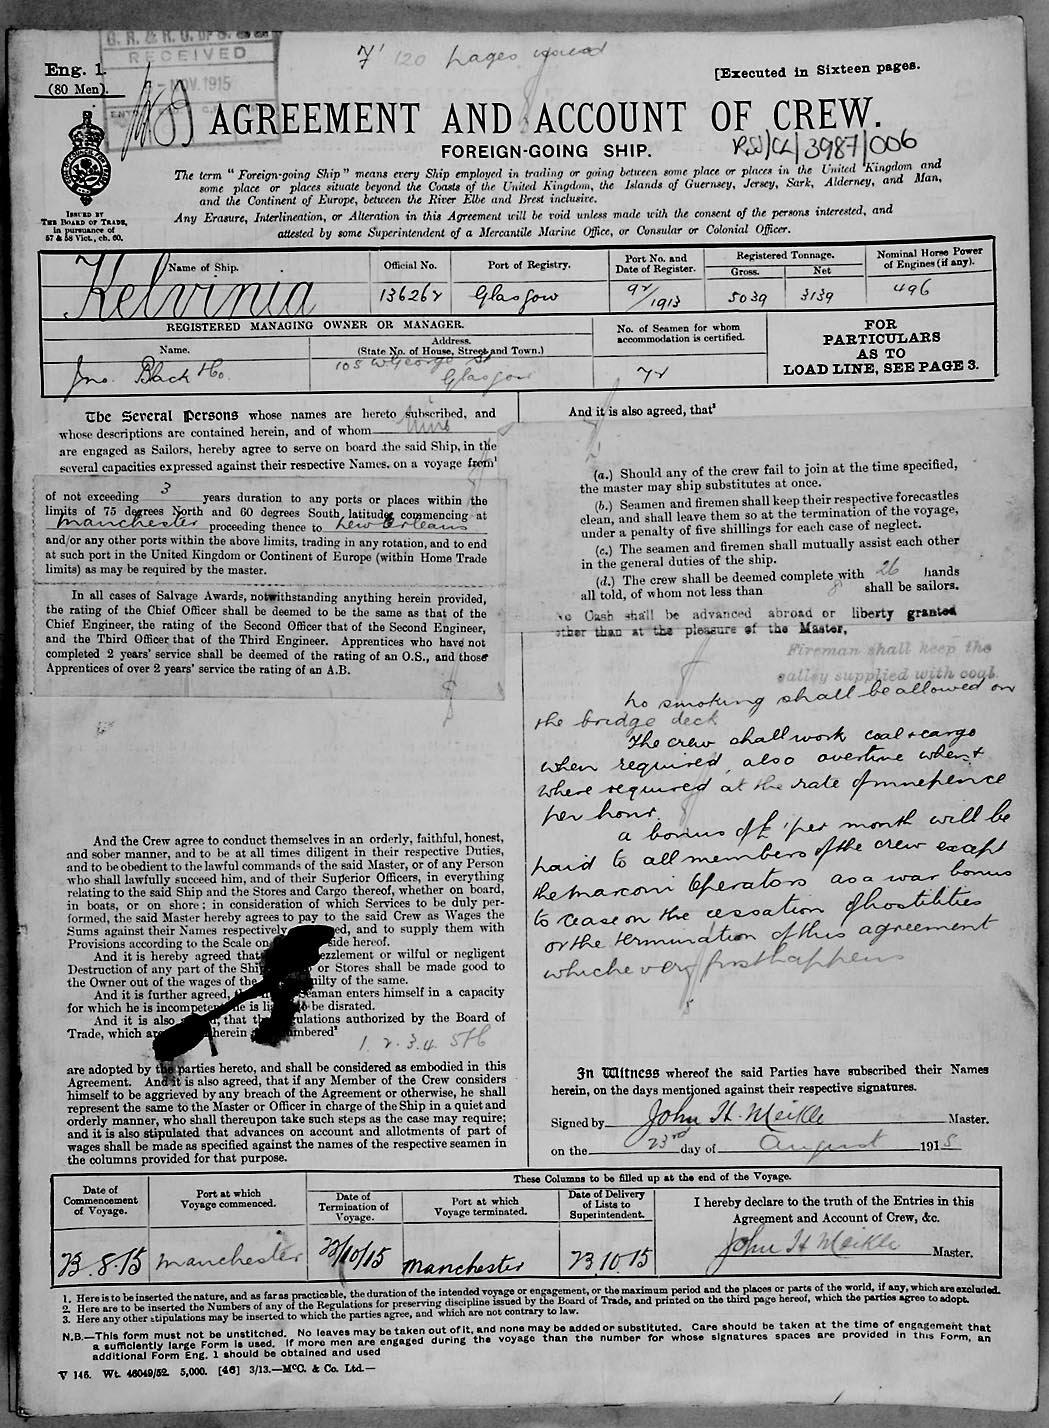 RECEIVED
NOV. 1915
120 pages
Eng. 1.
(80 Men).
[Executed in Sixteen pages.
AGREEMENT AND ACCOUNT OF CREW.
FOREIGN-GOING SHIP.
RSS/CL/3987/006
ISSUED BY
THE BOARD OF TRADE,
in pursuance of
57 & 58 Vict., ch. 60.
The term "Foreign-going Ship" means every Ship employed in trading or going between some place or places in the United Kingdom and
some place or places situate beyond the Coasts of the United Kingdom, the Islands of Guernsey, Jersey, Sark, Alderney, and Man,
and the Continent of Europe, between the River Elbe and Brest inclusive.
Any Erasure, Interlineation, or Alteration in this Agreement will be void unless made with the consent of the persons interested, and
attested by some Superintendent of a Mercantile Marine Office, or Consular or Colonial Officer.
Name of Ship. Official No. Port of Registry. Port No. and Date of Register. Registered Tonnage. Gross. Net Nominal Horse Power of Engines (if any).
Kelvinia 136262 Glasgow 92/1913 5039 3139 496
REGISTERED MANAGING OWNER OR MANAGER.
Name. Address. (State No. of House, Street and Town.)
No. of Seamen for whom accommodation is certified.
FOR
PARTICULARS
AS TO
LOAD LINE, SEE PAGE 3.
Jno. Black & Co. 105 W. George St Glasgow 72
The Several Persons whose names are hereto subscribed, and
whose descriptions are contained herein, and of whom nine
are engaged as Sailors, hereby agree to serve on board the said Ship, in the
several capacities expressed against their respective Names, on a voyage from¹
of not exceeding 3 years duration to any ports or places within the
limits of 75 degrees North and 60 degrees South latitude, commencing at
Manchester proceeding thence to New Orleans
and/or any other ports within the above limits, trading in any rotation, and to end
at such port in the United Kingdom or Continent of Europe (within Home Trade
limits) as may be required by the master.
In all cases of Salvage Awards, notwithstanding anything herein provided,
the rating of the Chief Officer shall be deemed to be the same as that of the
Chief Engineer, the rating of the Second Officer that of the Second Engineer,
and the Third Officer that of the Third Engineer. Apprentices who have not
completed 2 years' service shall be deemed of the rating of an O.S., and those
Apprentices of over 2 years' service the rating of an A.B.
And the Crew agree to conduct themselves in an orderly, faithful, honest,
and sober manner, and to be at all times diligent in their respective Duties,
and to be obedient to the lawful commands of the said Master, or of any Person
who shall lawfully succeed him, and of their Superior Officers, in everything
relating to the said Ship and the Stores and Cargo thereof, whether on board,
in boats, or on shore; in consideration of which Services to be duly per-
formed, the said Master hereby agrees to pay to the said Crew as Wages the
Sums against their Names respectively ed, and to supply them with
Provisions according to the Scale on side hereof.
And it is hereby agreed that ezzlement or wilful or negligent
Destruction of any part of the Shi or Stores shall be made good to
the Owner out of the wages of the ilty of the same.
And it is further agreed, eaman enters himself in a capacity
for which he is incompetent, he is li be disrated.
And it is also , that ulations authorized by the Board of
Trade, which are herein mbered²
1. 2. 3. 4. 5 & 6
are adopted by the parties hereto, and shall be considered as embodied in this
Agreement. And it is also agreed, that if any Member of the Crew considers
himself to be aggrieved by any breach of the Agreement or otherwise, he shall
represent the same to the Master or Officer in charge of the Ship in a quiet and
orderly manner, who shall thereupon take such steps as the case may require;
and it is also stipulated that advances on account and allotments of part of
wages shall be made as specified against the names of the respective seamen in
the columns provided for that purpose.
And it is also agreed, that³
(a.) Should any of the crew fail to join at the time specified,
the master may ship substitutes at once.
(b.) Seamen and firemen shall keep their respective forecastles
clean, and shall leave them so at the termination of the voyage,
under a penalty of five shillings for each case of neglect.
(c.) The seamen and firemen shall mutually assist each other
in the general duties of the ship.
(d.) The crew shall be deemed complete with 26 hands
all told, of whom not less than 8 shall be sailors.
No Cash shall be advanced abroad or liberty granted
other than at the pleasure of the Master,
Fireman shall keep the
galley supplied with coal.
No smoking shall be allowed on
the bridge deck
The crew shall work coal & cargo
when required, also overtime when &
where required at the rate of ninepence
per hour.
a bonus of £1 per month will be
paid to all members of the crew except
the Marconi Operators as a war bonus
to cease on the cessation of hostilities
or the termination of this agreement
whichever first happens
In Witness whereof the said Parties have subscribed their Names
herein, on the days mentioned against their respective signatures.
Signed by John H. Meikle Master.
on the 23rd day of August 1915
These Columns to be filled up at the end of the Voyage.
Date of Commencement of Voyage. Port at which Voyage commenced. Date of Termination of Voyage. Port at which Voyage terminated. Date of Delivery of Lists to Superintendent.
I hereby declare to the truth of the Entries in this
Agreement and Account of Crew, &c.
23.8.15 Manchester 23/10/15 Manchester 23.10.15 John H Meikle Master.
1. Here is to be inserted the nature, and as far as practicable, the duration of the intended voyage or engagement, or the maximum period and the places or parts of the world, if any, which are excluded.
2. Here are to be inserted the Numbers of any of the Regulations for preserving discipline issued by the Board of Trade, and printed on the third page hereof, which the parties agree to adopt.
3. Here any other stipulations may be inserted to which the parties agree, and which are not contrary to law.
N.B.—This form must not be unstitched. No leaves may be taken out of it, and none may be added or substituted. Care should be taken at the time of engagement that
a sufficiently large Form is used. If more men are engaged during the voyage than the number for whose signatures spaces are provided in this Form, an
additional Form Eng. 1 should be obtained and used
V 146. Wt. 46049/52. 5,000. [46] 3/13.—McC. & Co. Ltd.—